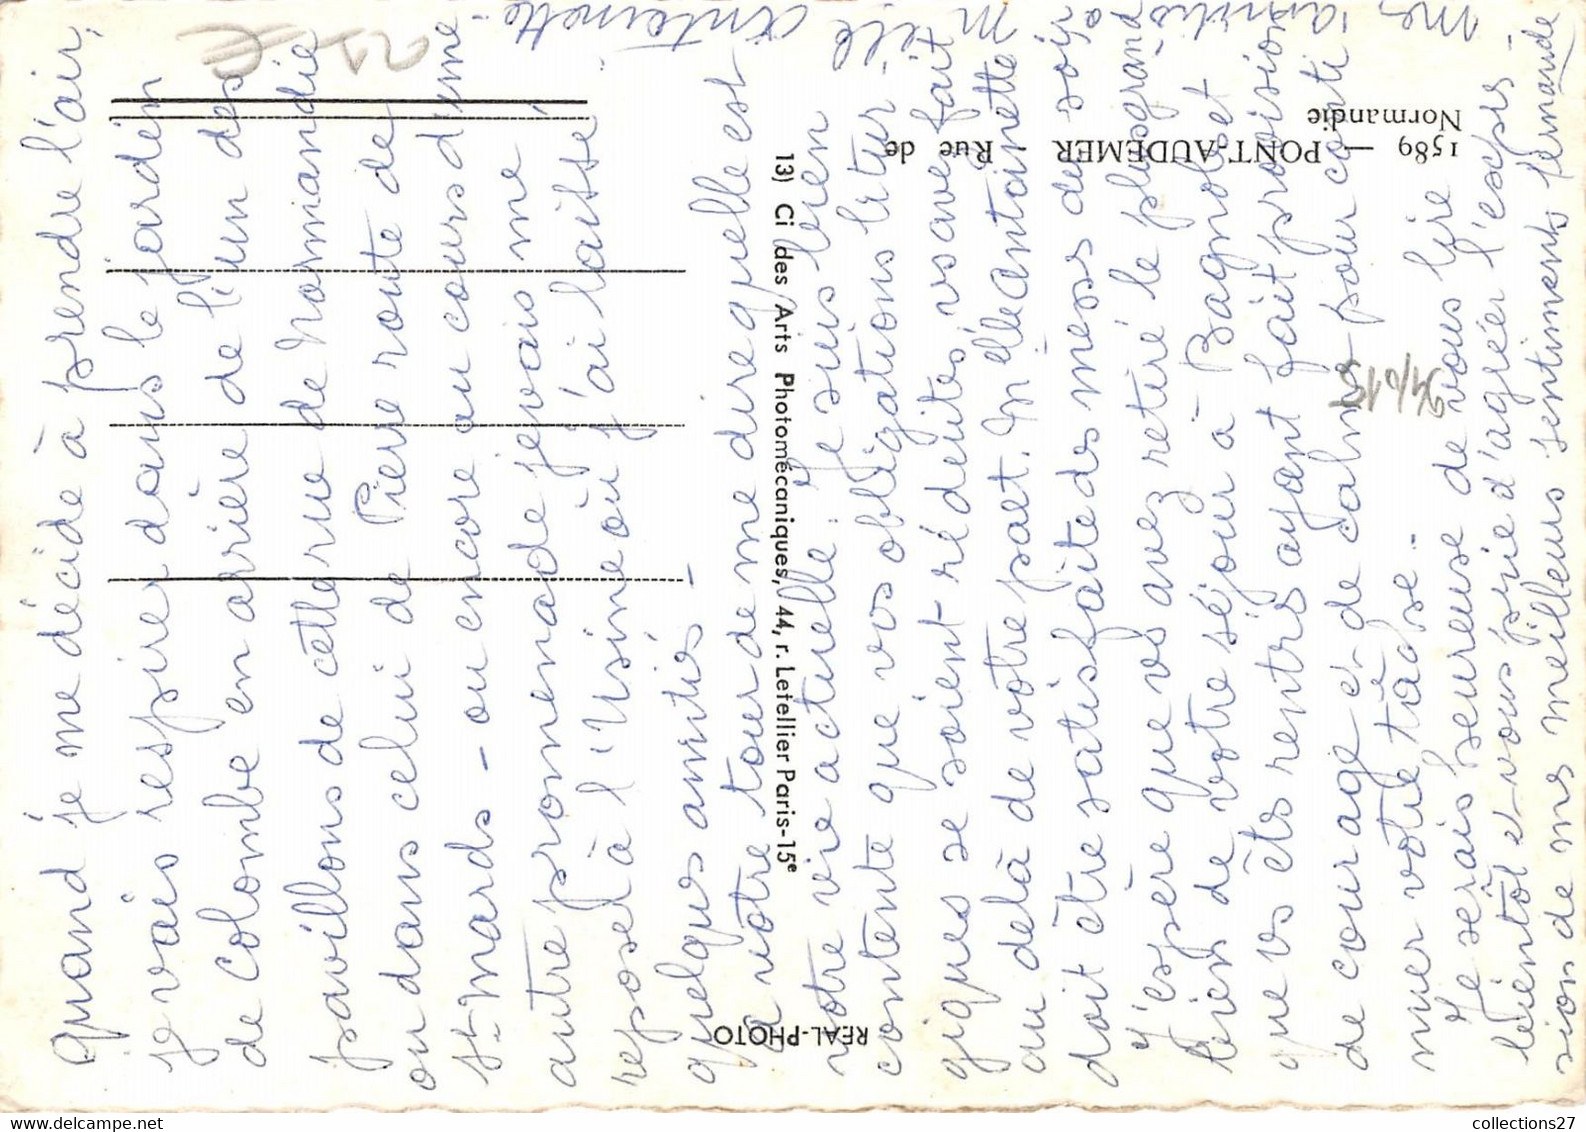 Quand je me décide à prendre l'air,
je vais respirer dans le jardin
de Colombe en arrière de l'un des
pavillons de cette rue de Normandie
ou dans celui de Pierre route de
St-Mards - ou encore au cours d'une
autre promenade je vais me
reposer à l'Usine où j'ai laissé
quelques amitiés -
A votre tour de me dire quelle est
votre vie actuelle. Je suis bien
contente que vos obligations litur-
giques se soient réduites, vs avez fait
au delà de votre part. Melle Antoinette
doit être satisfaite des mess des soir
J'espère que vs avez retiré le plus grand
bien de votre séjour à Bagnols et
que vs êts rentrés ayant fait provision
de courage et de calme pour conti
nuer votre tâche -
Je serais heureuse de vous lire
bientôt et vous prie d'agréer l'expres-
sion de mes meilleurs sentiments Fernande
Mes amitiés à
Melle
Antoinette -
1589 — PONT-AUDEMER - Rue de
Normandie
13) Ci des Arts Photomécaniques, 44, r. Letellier Paris-15e
REAL-PHOTO
collections27